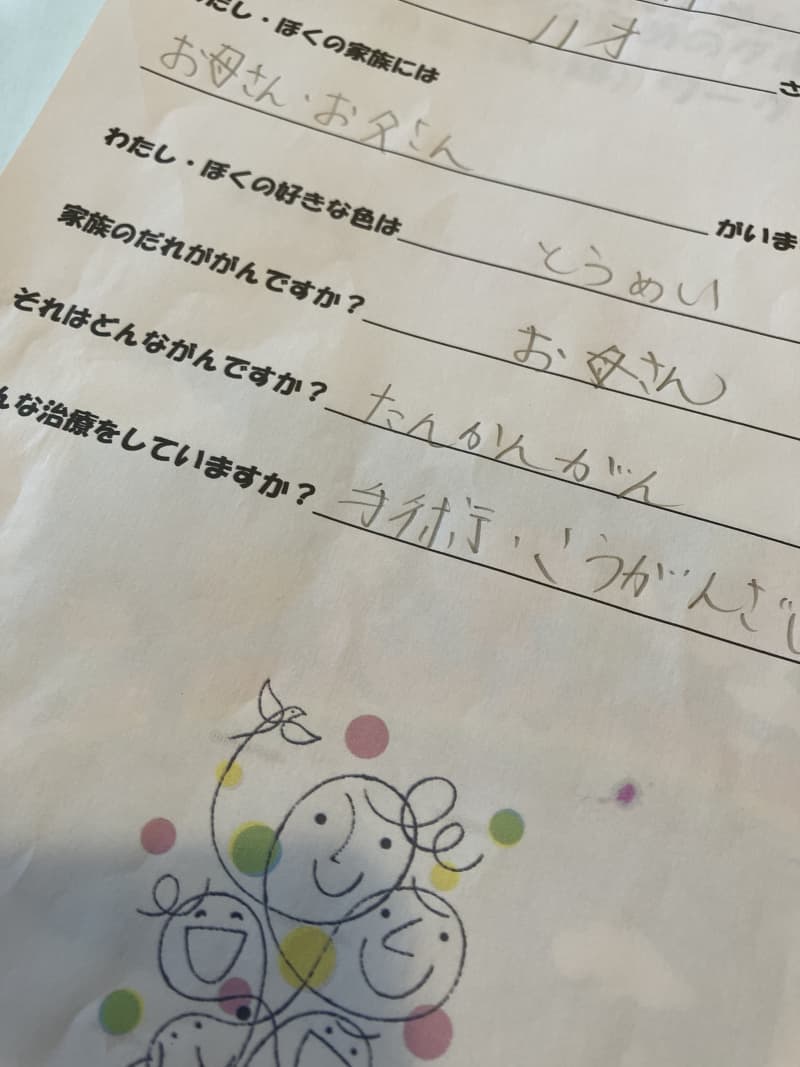 ハオ さ
たし・ぼくの家族には
お母さん・お父さん がいま
わたし・ぼくの好きな色は とうめい
家族のだれががんですか？ お母さん
それはどんながんですか？ たんかんがん
んな治療をしていますか？ 手術・こうがんざい